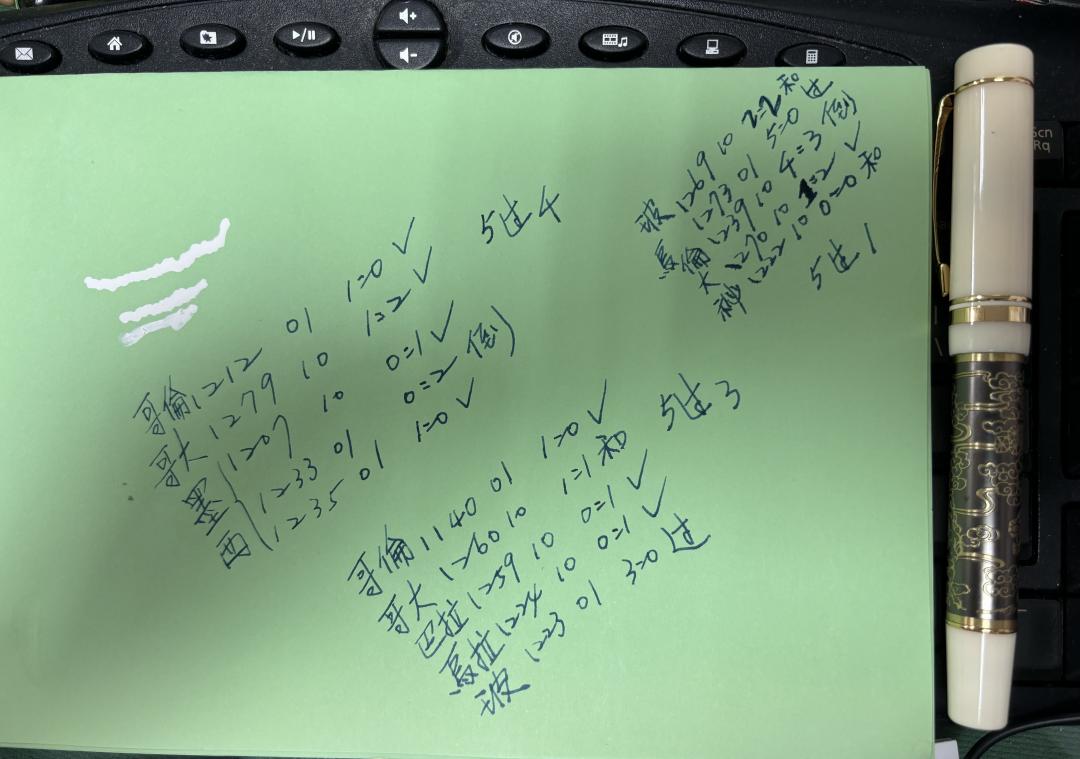 哥倫 1212 01 1=0 ✓
哥大 1279 10 1=2 ✓
墨 1207 10 0=1 ✓
西 1233 01 0=2 倒
1235 01 1=0 ✓
5过4
哥倫 1140 01 1=0 ✓
哥大 1260 10 1=1 和
巴拉 1259 10 0=1 ✓
烏拉 1224 10 0=1 ✓
玻 1223 01 3=0 过
5过3
玻 1269 10 2=2 和
1273 01 5=0 过
倫 1239 10 4=3 倒
大 1270 10 1=2 ✓
秘 1222 10 0=0 和
5过1
Scn
Rq